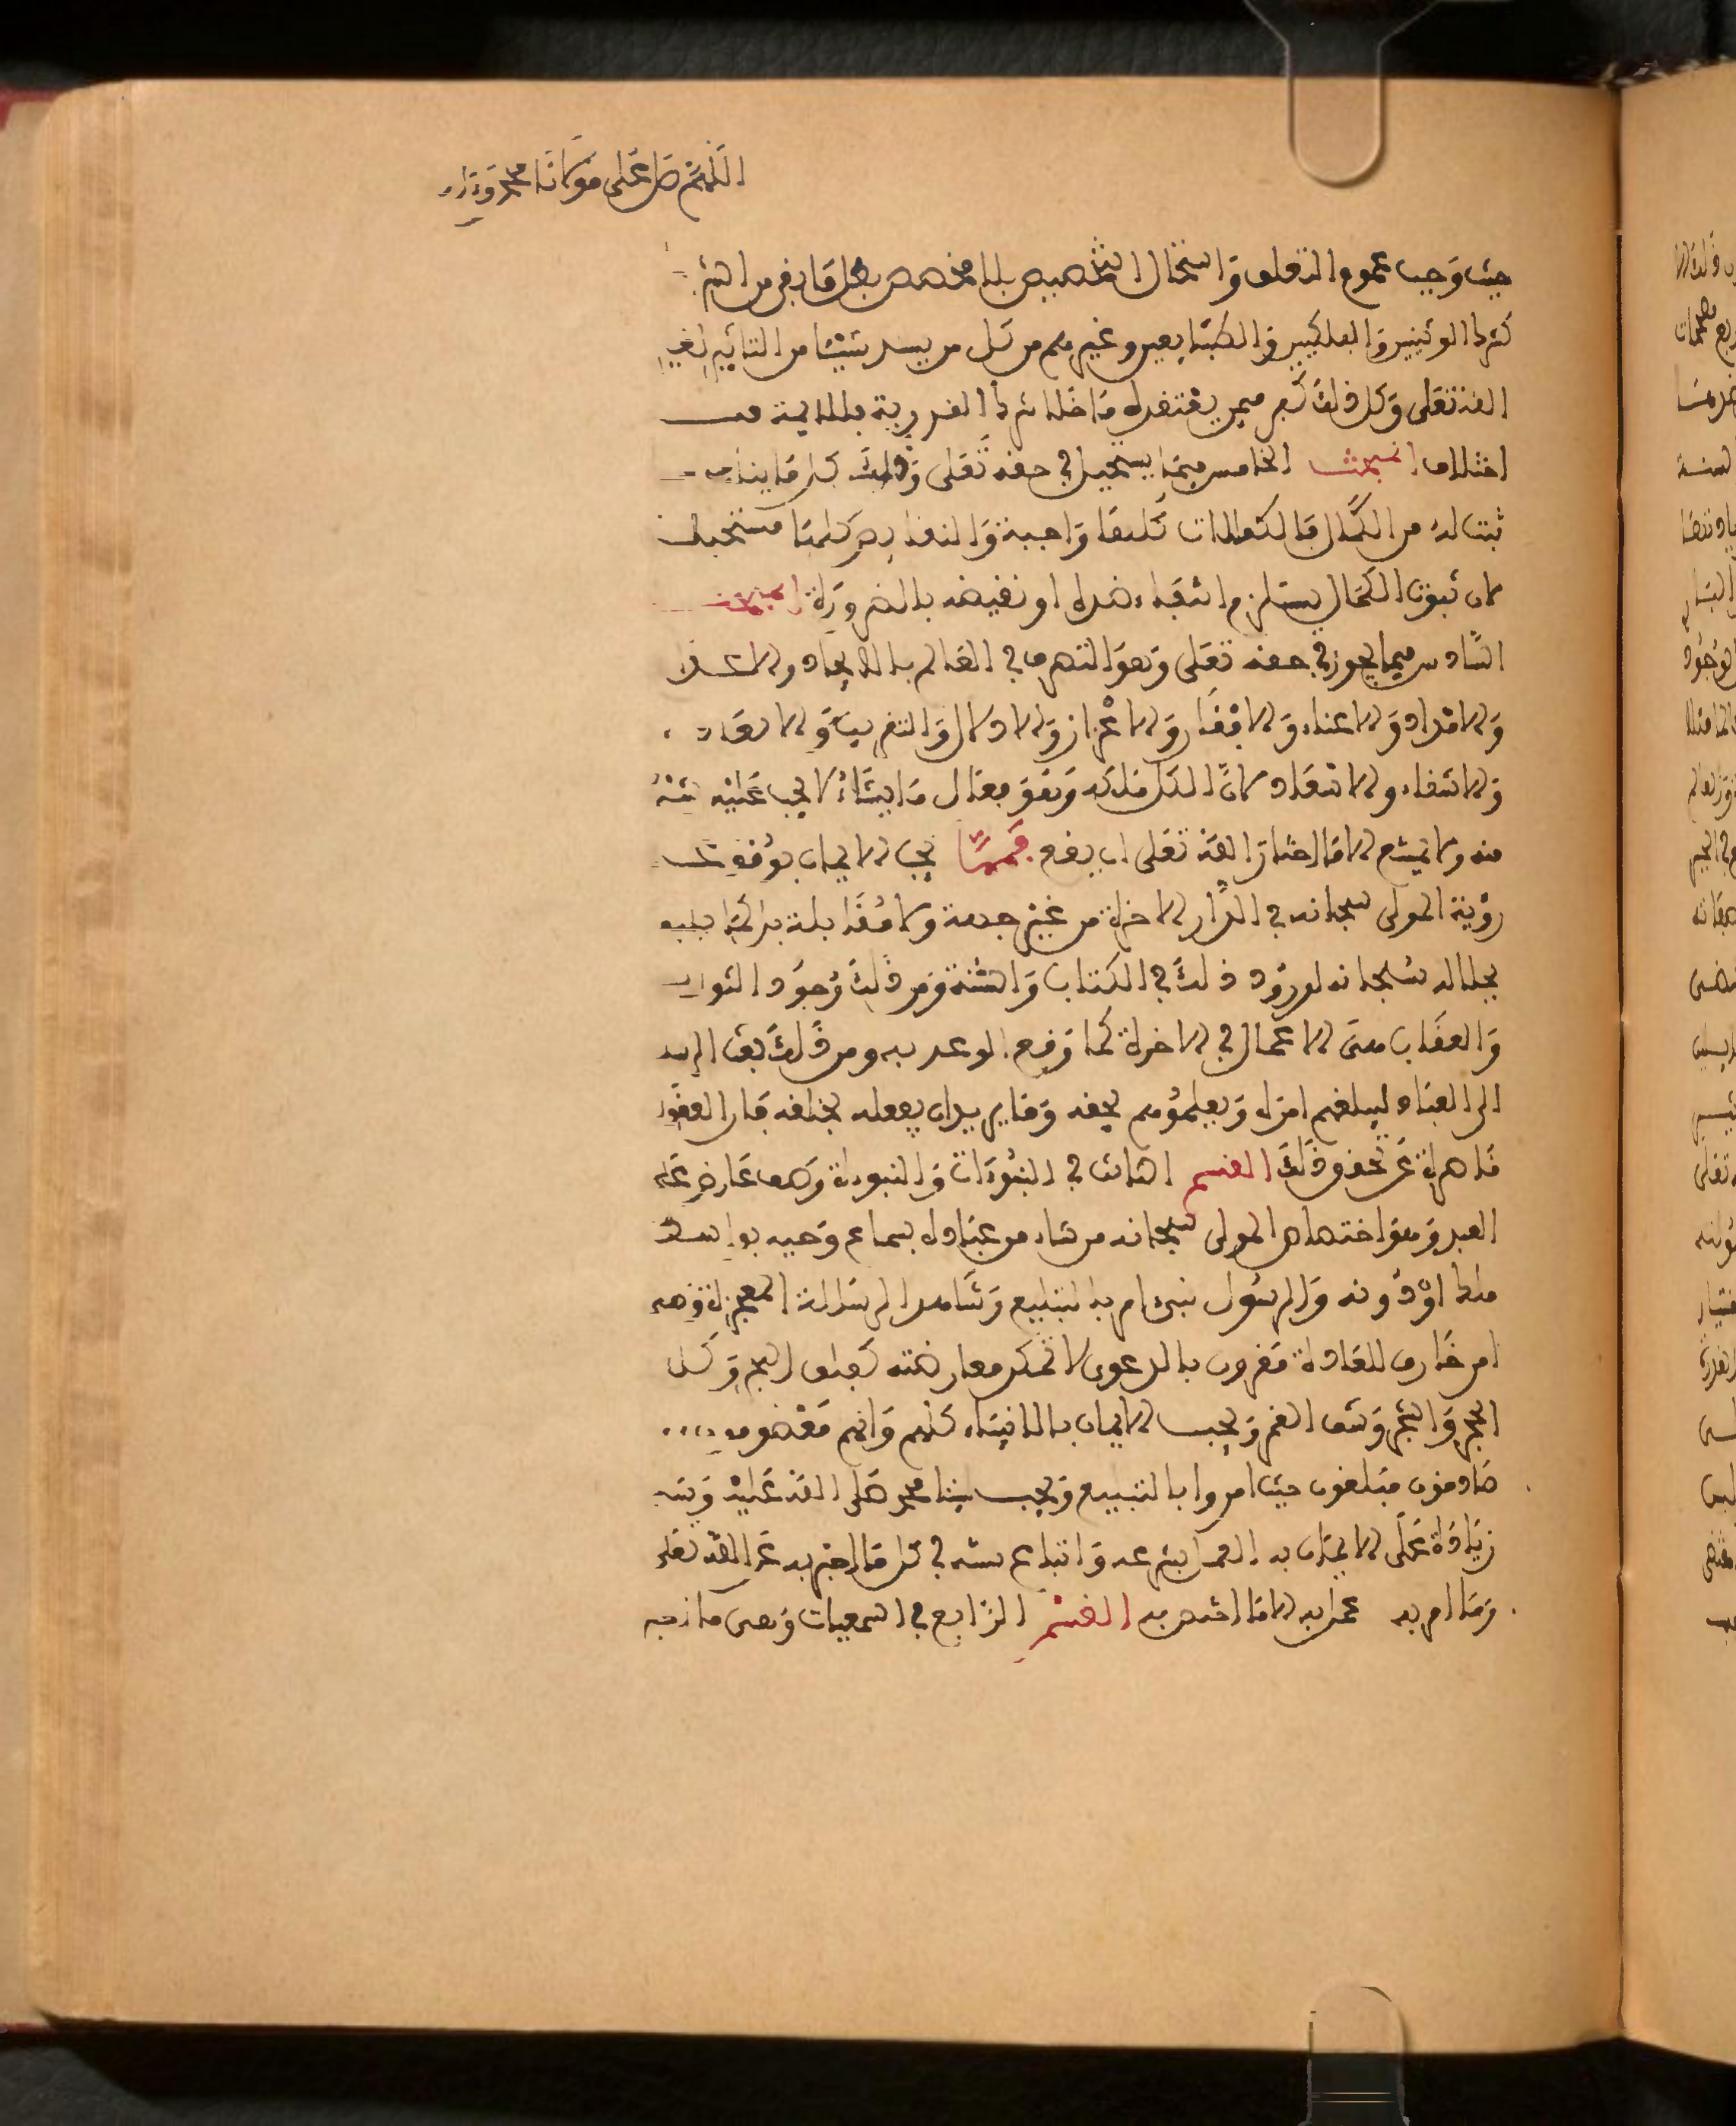 اللهم صل على مولانا محمد وءاله
حيث وجب عموم التعلق واستحال التخصيص بلا مخصص بطل ما بقي من الشر
كشرك الوثنيين والفلكيين والطبائعيين وغيرهم من كل من يسند شيئا من التأثير لغير
الله تعلى وكل ذلك كفر ممن يعتقده ما خلا شرك القدرية
اختلاف المبحث الخامس فيما يستحيل في حقه تعلى وذلك كل ما ينافي
ثبت له من الكمال فالكمالات كلها واجبة والنقايص كلها مستحيلة
لان ثبوت الكمال يستلزم انتفاء ضده او نقيضه بالضرورة المبحث
السادس فيما يجوز في حقه تعلى وهو التصرف في العالم بالايجاد والاعدام
والامداد والاغناء والافقار والاعزاز والاذلال والتقريب والابعاد
والاشقاء والاسعاد لان الكل ملكه وهو فعال ما يشاء لا يجب عليه شيء
منه ولا يمتنع الا ما اختار الله تعلى ان يقع يجب الايمان بوقوع
رؤية المولى سبحانه في الدار الاخرة من غير جهة ولا مقابلة بل كما يليق
بجلاله سبحانه لورود ذلك في الكتاب والسنة ومن ذلك وجود الثواب
والعقاب على الاعمال في الاخرة كما وقع الوعد به ومن ذلك بعث الرسل
الى العباد ليبلغهم امره ويعلموهم بحقه وما يريد ان يفعله بخلقه فان العقول
قاصرة عن تحقق ذلك القسم الثالث في النبوءات والنبوءة وصف عارض على
العبد وهو اختصاص المولى سبحانه من شاء من عباده بسماع وحيه بواسطة
ملك او دونه والرسول نبيء امر بالتبليغ وشاهد الرسالة المعجزة وهي
امر خارق للعادة مقرون بالدعوى لا تمكن معارضته كفلق البحر وكلام
الحجر والشجر وشق القمر ويجب الايمان بالانبياء كلهم وانهم معصومون
صادقون مبلغون حيث امروا بالتبليغ ويجب لنبينا محمد صلى الله عليه وسلم
زيادة على الايمان به العمل بشرعه واتباع سنته في كل ما اخبر به عن الله تعلى
وما امر به عمل به الا ما اختص به القسم الرابع في السمعيات وهي ما ازجبه